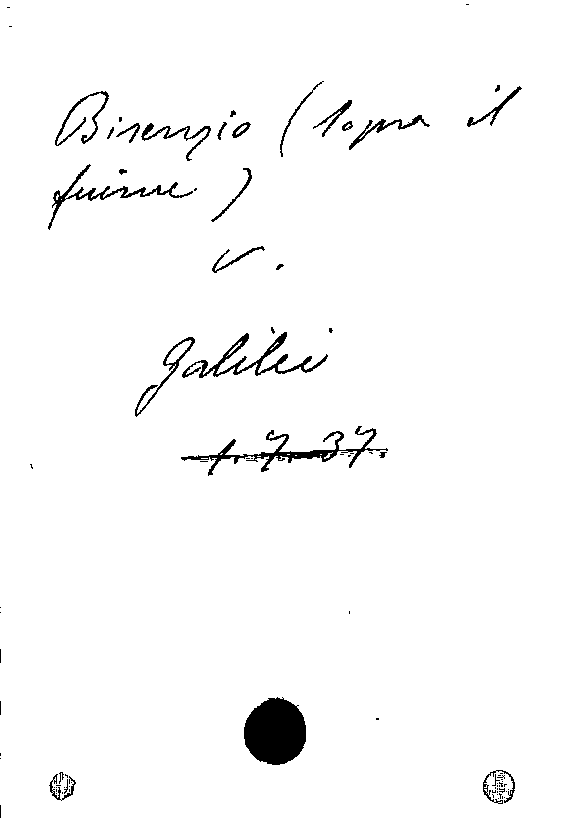 Bisenzio (sopra il
fiume)
v.
Galilei
1. 7. 37.